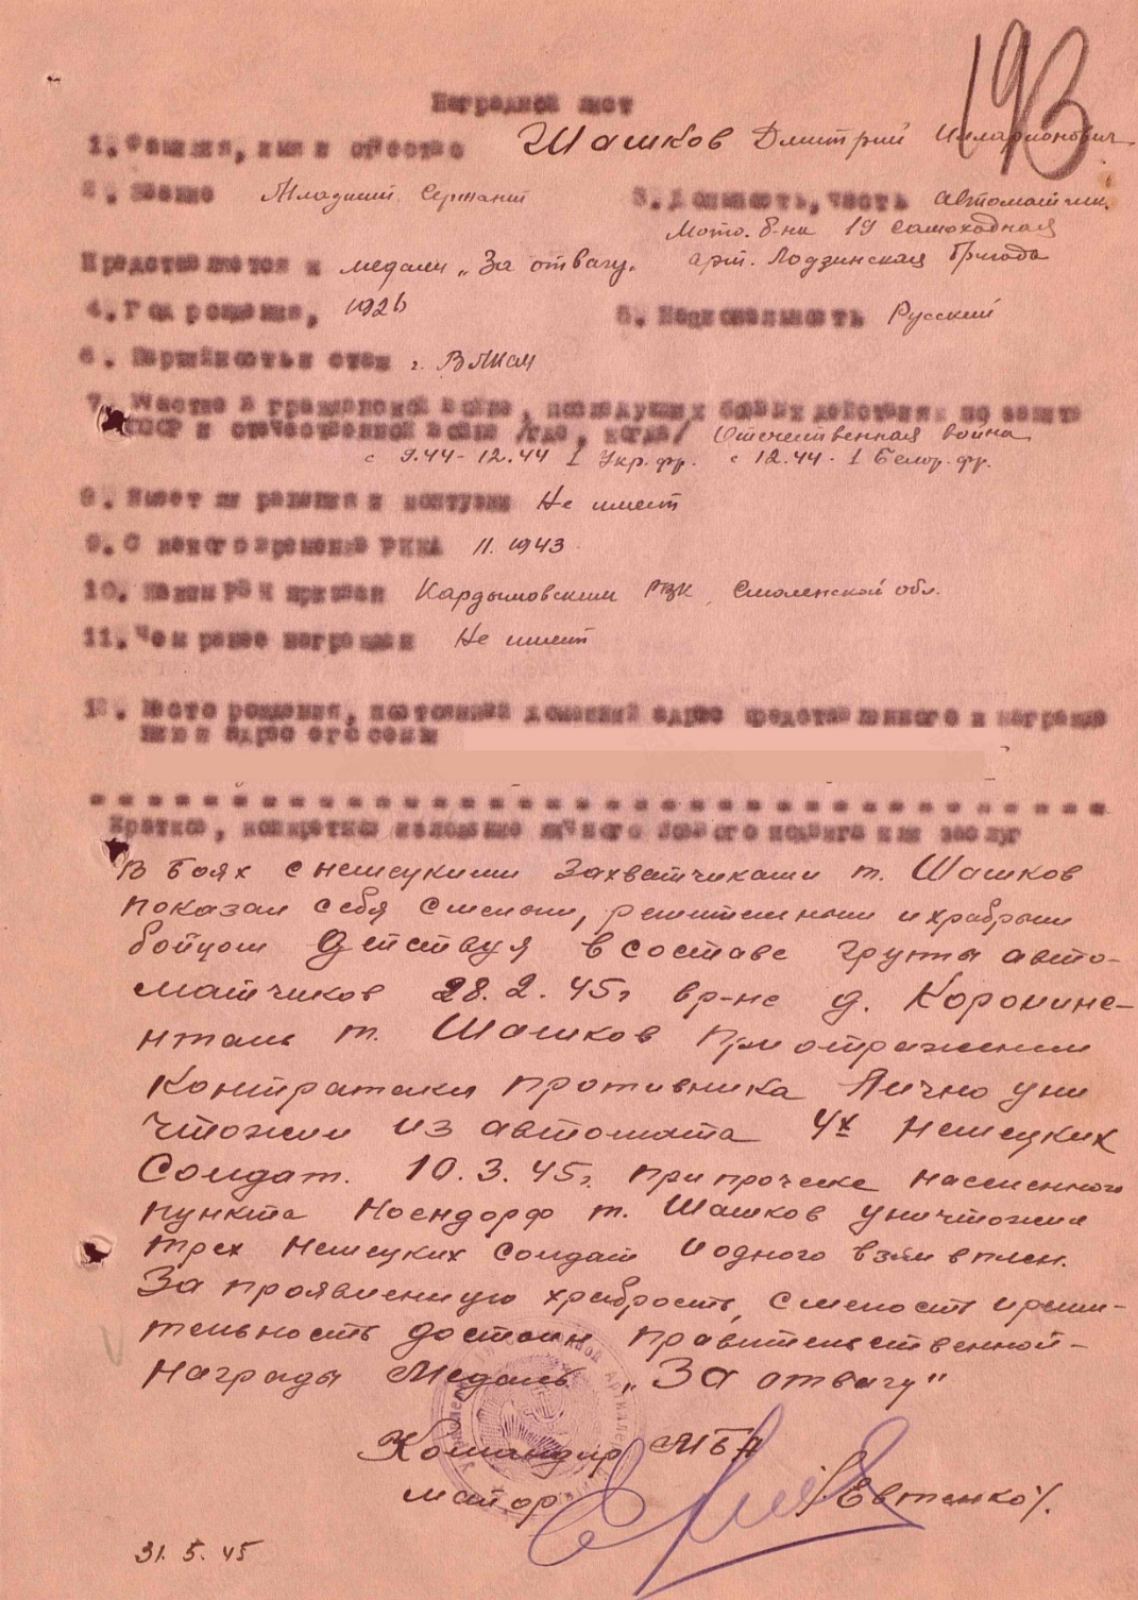 193
Наградной лист
1. Фамилия, имя и отчество Шашков Дмитрий Илларионович
2. Звание Младший Сержант 3. Должность, часть автоматчик
мото. б-на 19 самоходная
Представляется к медали „За отвагу" арт. Лодзинская бригада
4. Год рождения, 1926 5. Национальность Русский
6. Партийность и стаж г. ВЛКСМ
7. Участие в гражданской войне, последующих боевых действиях по защите
СССР и отечественной войне /где, когда/ Отечественная война
с 9.44-12.44 1 Укр. фр. с 12.44-1 Белор. фр.
8. Имеет ли ранения и контузии Не имеет
9. С какого времени в РККА 11. 1943
10. Каким РВК призван Кардымовским РВК Смоленской обл.
11. Чем ранее награжден Не имеет
12. Место рождения, постоянный домашний адрес представленного к награжде
нию и адрес его семьи
Краткое, конкретное изложение личного боевого подвига или заслуг
В боях с немецкими захватчиками т. Шашков
показал себя смелым, решительным и храбрым
бойцом Действуя в составе группы авто-
матчиков 28.2.45г вр-не д. Коронине-
нталь т. Шашков При отражении
Контратаки противника Лично уни
чтожил из автомата 4х немецких
Солдат. 10.3.45г. при проческе населенного
пункта Носндорф т. Шашков уничтожил
трех немецких солдат и одного взял в плен.
За проявленную храбрость, смелость и реши-
тельность достоин правительственной-
награды Медаль „За отвагу"
Командир МБА
майор /Евтенко/.
31. 5. 45